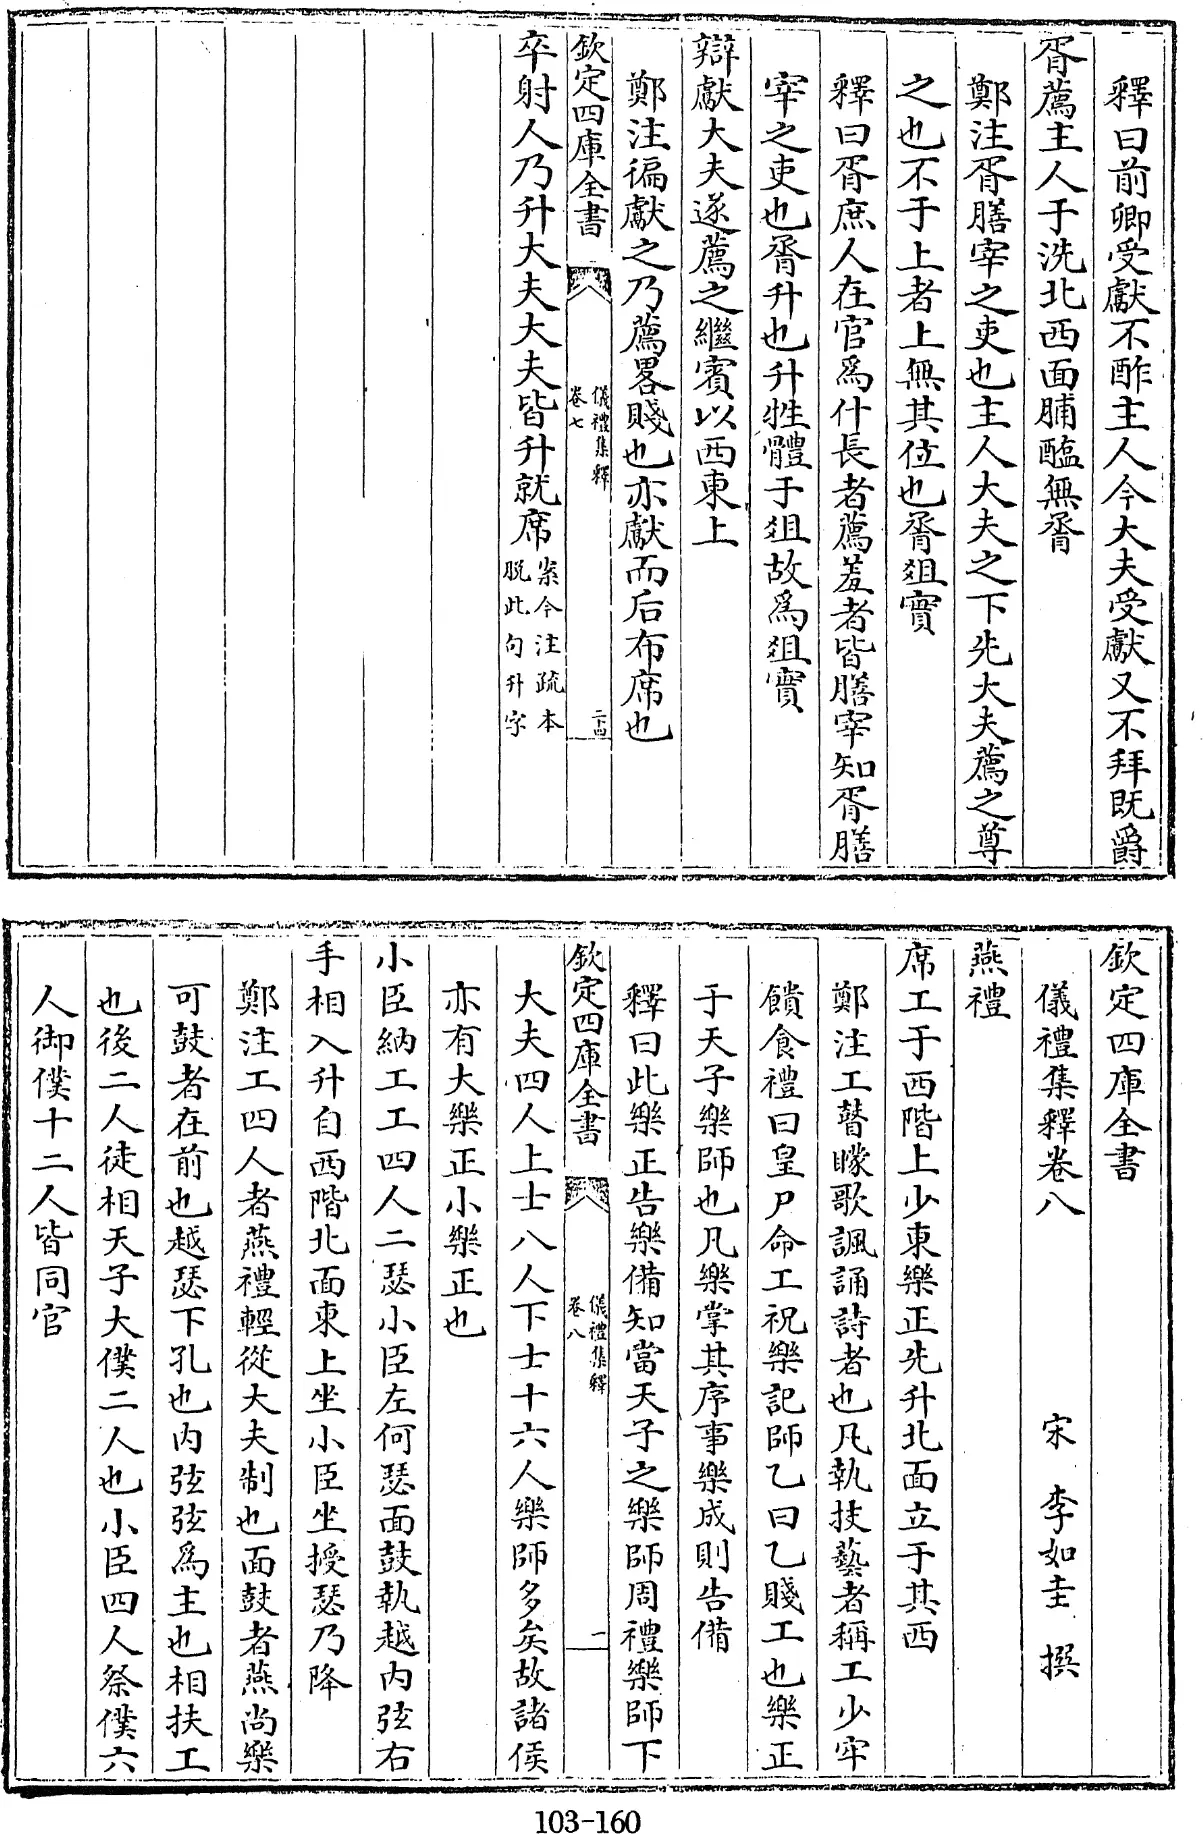 釋曰前卿受獻不酢主人今大夫受獻又不拜既爵
胥薦主人于洗北西面脯醢無脀
鄭注胥膳宰之吏也主人大夫之下先大夫薦之尊
之也不于上者上無其位也脀俎實
釋曰胥庶人在官爲什長者薦羞者皆膳宰知胥膳
宰之吏也脀升也升牲體于俎故爲俎實
辯獻大夫遂薦之繼賓以西東上
鄭注徧獻之乃薦畧賤也亦獻而后布席也
欽定四庫全書
儀禮集釋
卷七
二十四
卒射人乃升大夫大夫皆升就席
案今注疏本
脱此句升字
欽定四庫全書
儀禮集釋卷八
宋 李如圭 撰
燕禮
席工于西階上少東樂正先升北面立于其西
鄭注工瞽矇歌諷誦詩者也凡執技藝者稱工少牢
饋食禮曰皇尸命工祝樂記師乙曰乙賤工也樂正
于天子樂師也凡樂掌其序事樂成則告備
釋曰此樂正告樂備知當天子之樂師周禮樂師下
欽定四庫全書
儀禮集釋
卷八
一
大夫四人上士八人下士十六人樂師多矣故諸侯
亦有大樂正小樂正也
小臣納工工四人二瑟小臣左何瑟面鼓執越内弦右
手相入升自西階北面東上坐小臣坐授瑟乃降
鄭注工四人者燕禮輕從大夫制也面鼓者燕尚樂
可鼓者在前也越瑟下孔也内弦弦爲主也相扶工
也後二人徒相天子大僕二人也小臣四人祭僕六
人御僕十二人皆同官
103-160